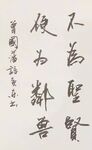 不為聖賢
便為禽獸
曾國藩語